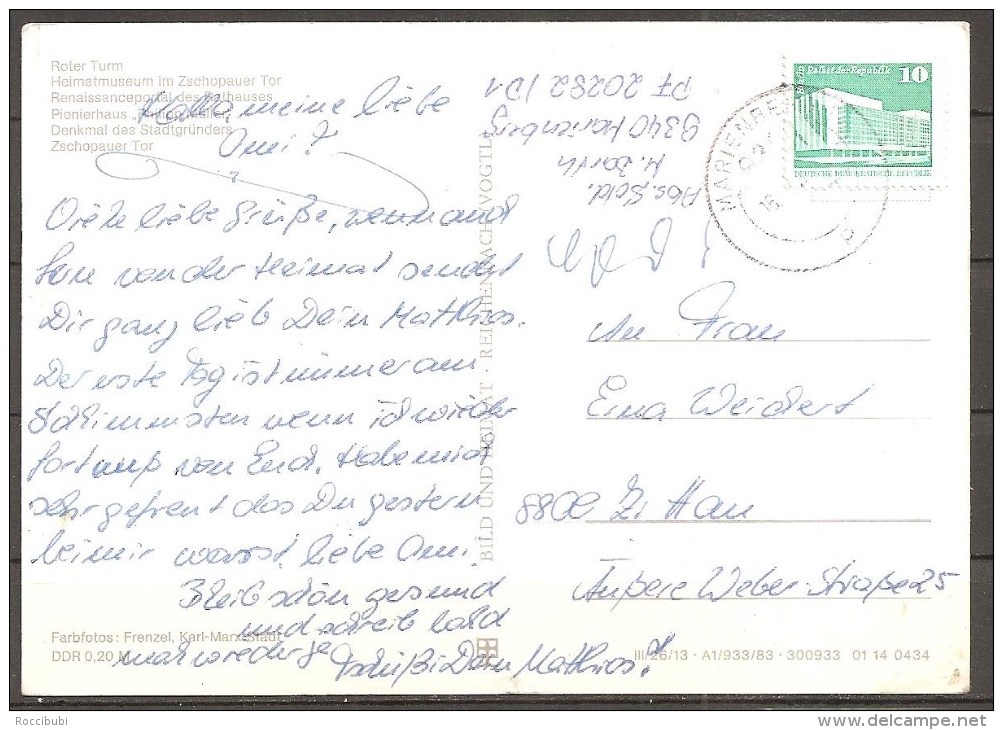 Roter Turm
Heimatmuseum im Zschopauer Tor
Renaissanceportal des Rathauses
Pionierhaus „ Müller"
Denkmal des Stadtgründers
Zschopauer Tor
Hallo meine liebe
Omi!
Viele liebe Grüße, wenn auch
fern von der Heimat sendet
Dir ganz lieb Dein Matthias.
Der erste Tag ist immer am
Schlimmsten wenn ich wieder
fort muß von Euch. Habe mich
sehr gefreut das Du gestern
bei mir warst, liebe Omi.
Bleib schön gesund
und schreib bald
mal wieder ja
Tschüßi Dein Matthias!
Farbfotos: Frenzel, Karl-Marx-Stadt
DDR 0,20 M
BILD UND HEIMAT · REICHENBACH (VOGTL)
Abs. Sold.
M. Barth
9340 Marienberg
PF 20282/D1
MARIENBERG
Palast der Republik
10
DEUTSCHE DEMOKRATISCHE REPUBLIK
An Frau
Erna Weickert
8800 Zittau
Äußere Weber-Straße 25
III/26/13 · A1/933/83 · 300933 01 14 0434
Roccibubi
www.delcampe.net